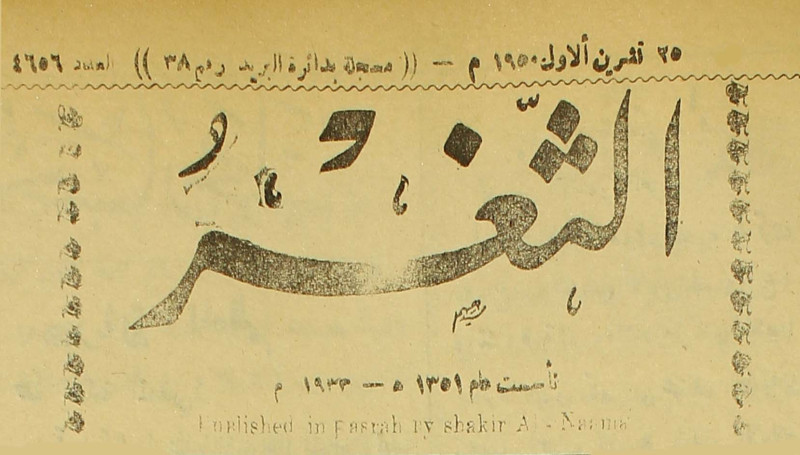 ٢٥ تشرين ألاول ١٩٥٠ م — (( مسجلة بدائرة البريد رقم ٣٨ )) العدد ٤٦٥٦
الثَّغْرُ
تأسست عام ١٣٥١ ه — ١٩٣٣ م
Published in Basrah By shakir Al - Naama